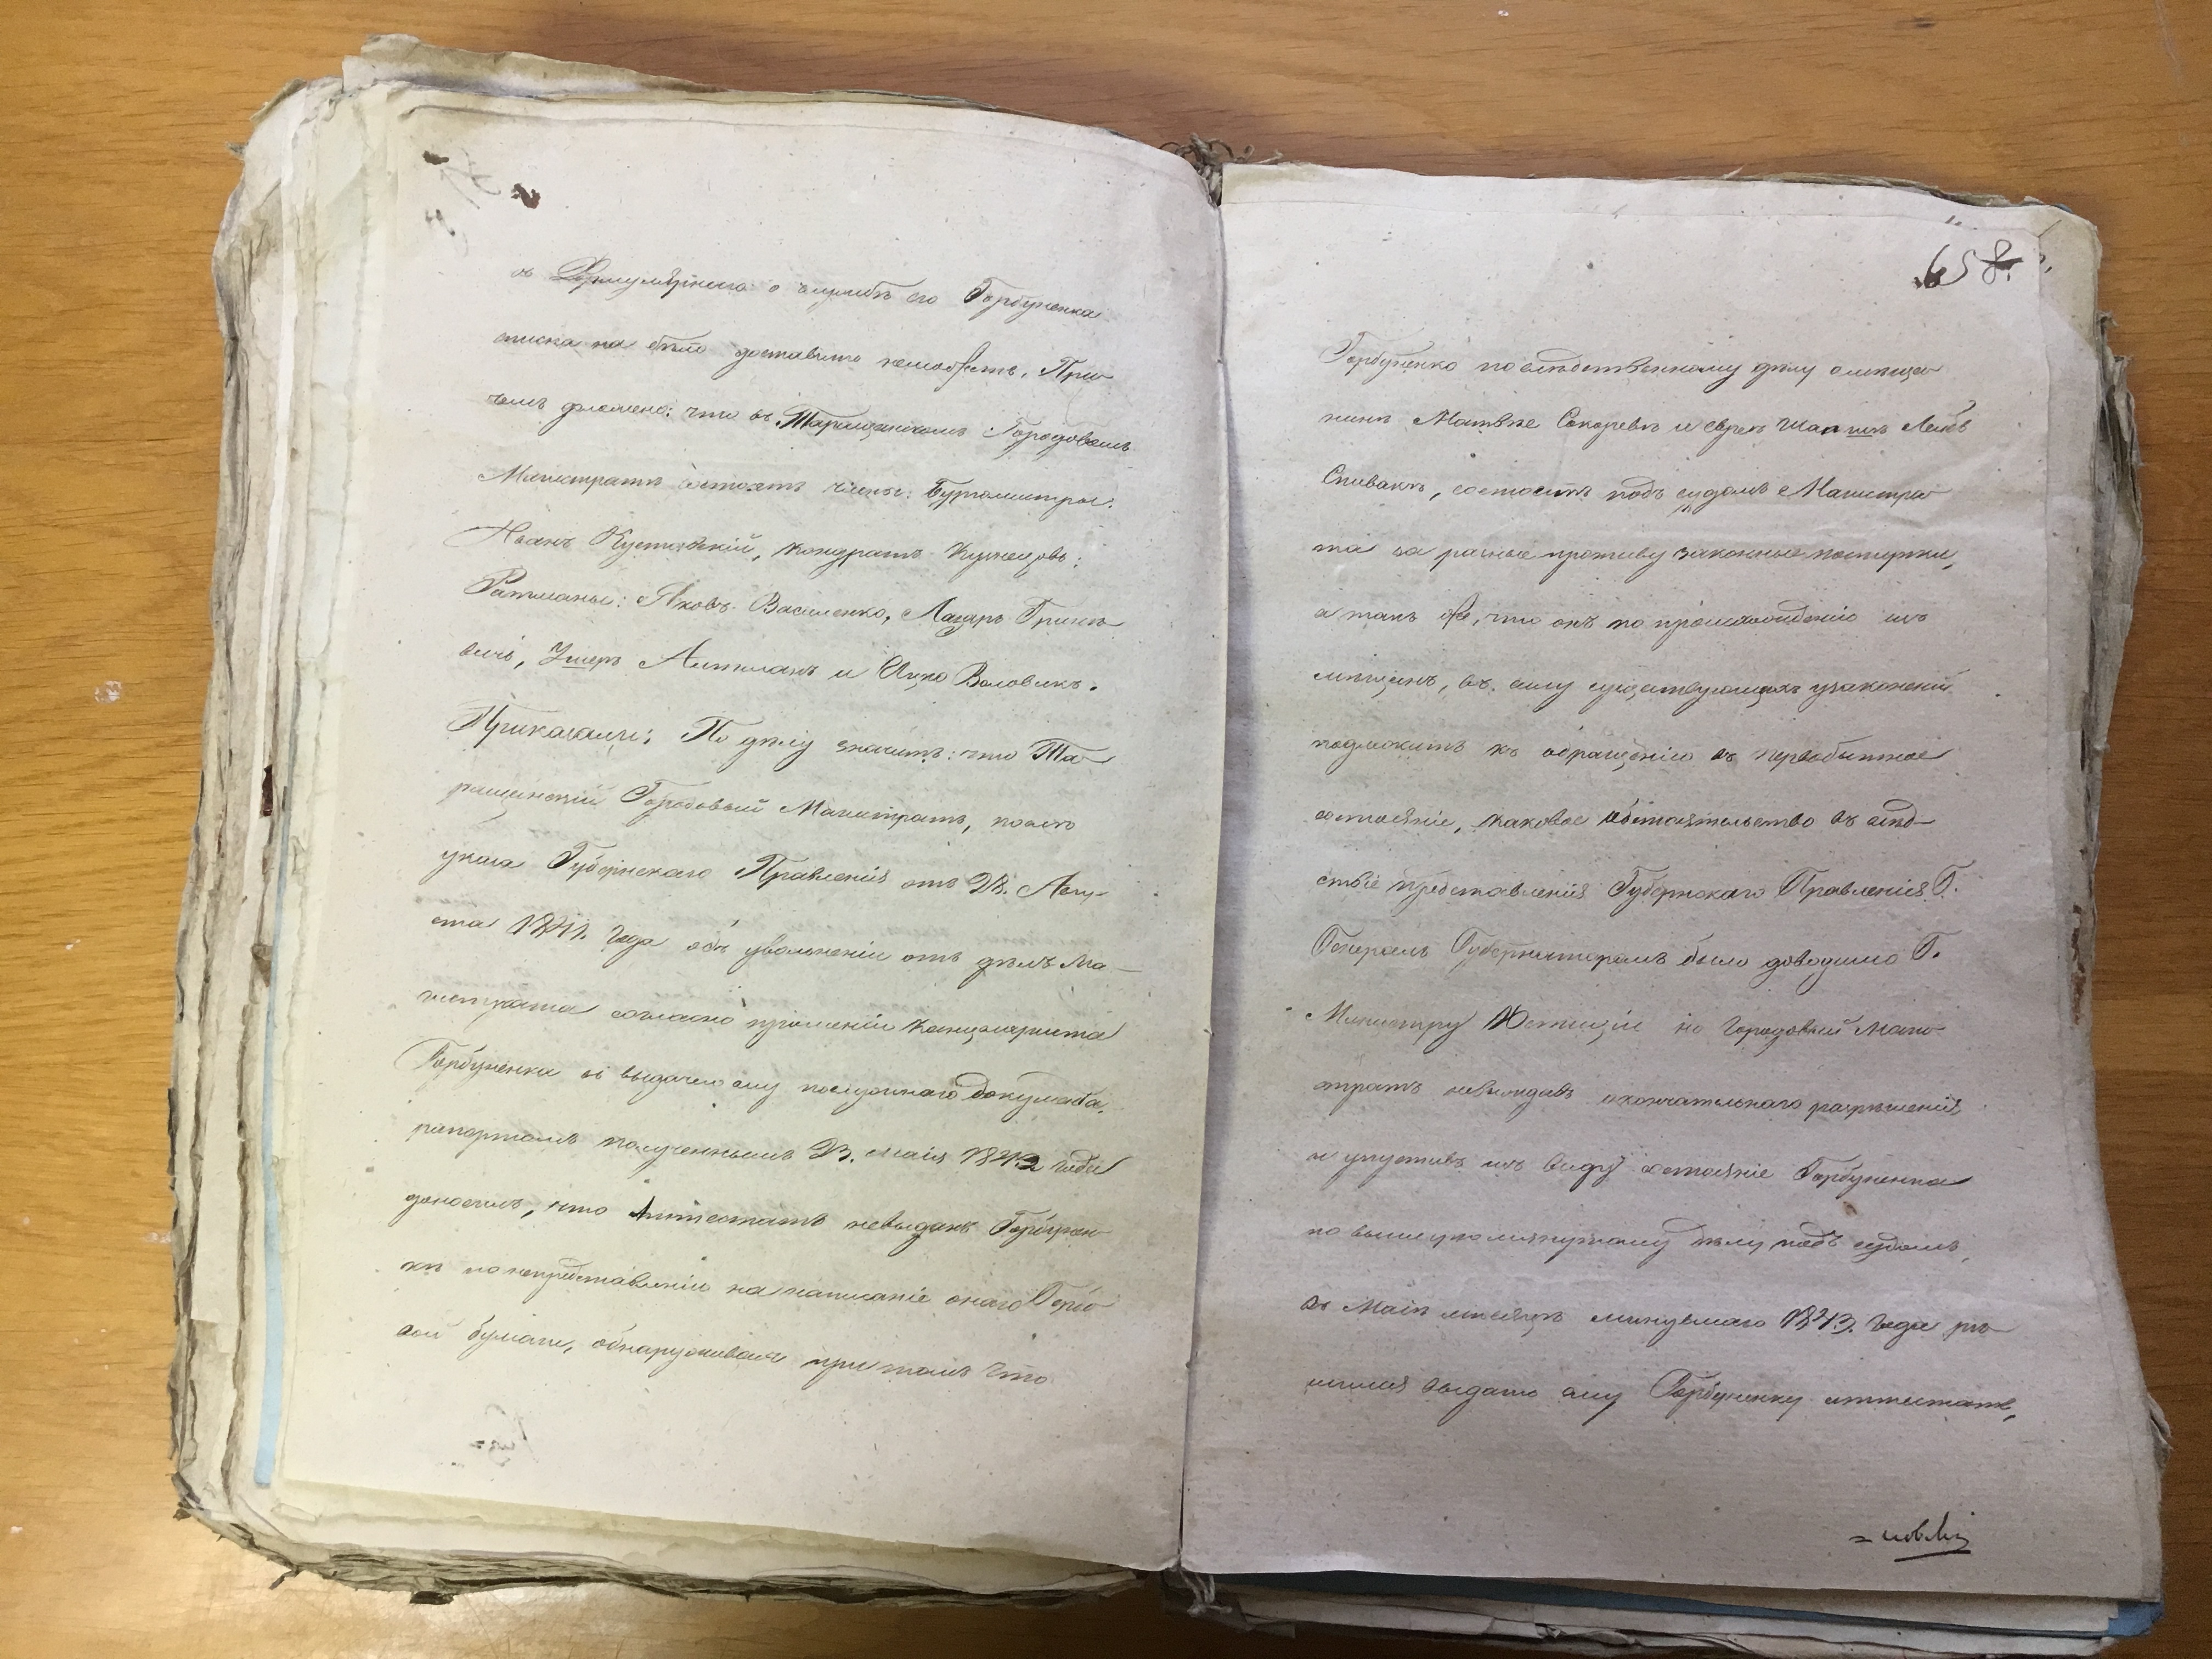 о службѣ его Горбуненка
списка не было доставлено При
чемъ доложено: что въ Таращанскомъ Городовомъ
Магистратѣ состоятъ члены: Бургомистры:
Иванъ Кондратъ Кузнецовъ;
Ратманы: Яковъ Василенко, Лазарь Грине
вичь, Ушеръ Литманъ и Ицко Воловикъ.
Приказали: По дѣлу значитъ: что Та
ращанскій Городовый Магистратъ, послѣ
указа Губернскаго Правленія отъ Авгу-
ста 1841. года объ увольненіи отъ дѣлъ Ма-
гистрата согласно прошенію Канцеляриста
Горбуненка и выдачею ему документа,
рапортомъ полученнымъ 23. Маія 1842 года
доносилъ, что Аттестатъ невыданъ Горбунен
кѣ по непредставленію на написаніе онаго Гербо
вой бумаги, обнаруживая при томъ что
658.
Горбуненко по слѣдственному дѣлу о мѣща
нинѣ Матвѣе и евреѣ Лейбѣ
Спивакѣ, состоитъ подъ судомъ Магистра
та за разные противу законные поступки,
а такъ же, что онъ по происхожденію изъ
мѣщанъ, въ силу существующихъ узаконеній
подлежитъ къ обращенію въ первобытное
состояніе, каковое обстоятельство въ слѣд-
ствіе представленія Губернскаго Правленія Г.
Генералъ Губернаторомъ было доводимо Г.
Министру Юстиціи но Городовый Маги
стратъ невыждавъ окончательнаго разрѣшенія
и упустивъ изъ виду состояніе Горбуненка
по вышеупомянутому дѣлу подъ судомъ,
въ Маіѣ мѣсяцѣ минувшаго 1843. года рѣ
шился выдать ему Горбуненку аттестатъ,